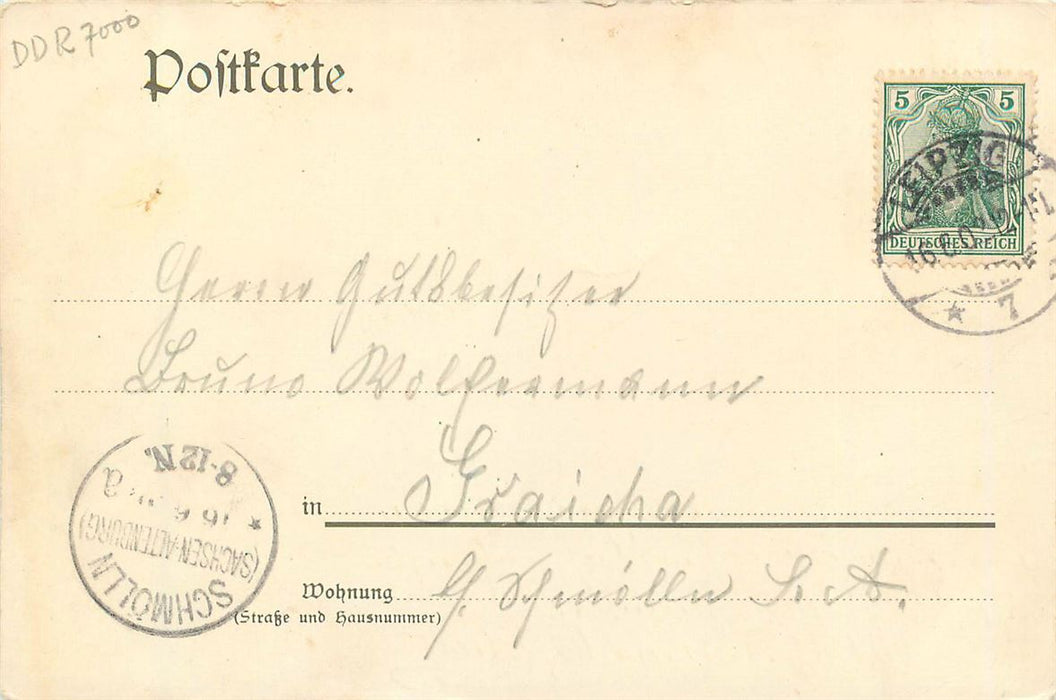 DDR 7000
Postkarte.
5 5
DEUTSCHES REICH
LEIPZIG
* 7
Herrn Gutsbesitzer
Bruno Wolfermann
in Graicha
Wohnung b/ Schmölln S. A.
(Straße und Hausnummer)
8-12 N.
* 16 6 a
(SACHSEN-ALTENBURG)
SCHMÖLLN